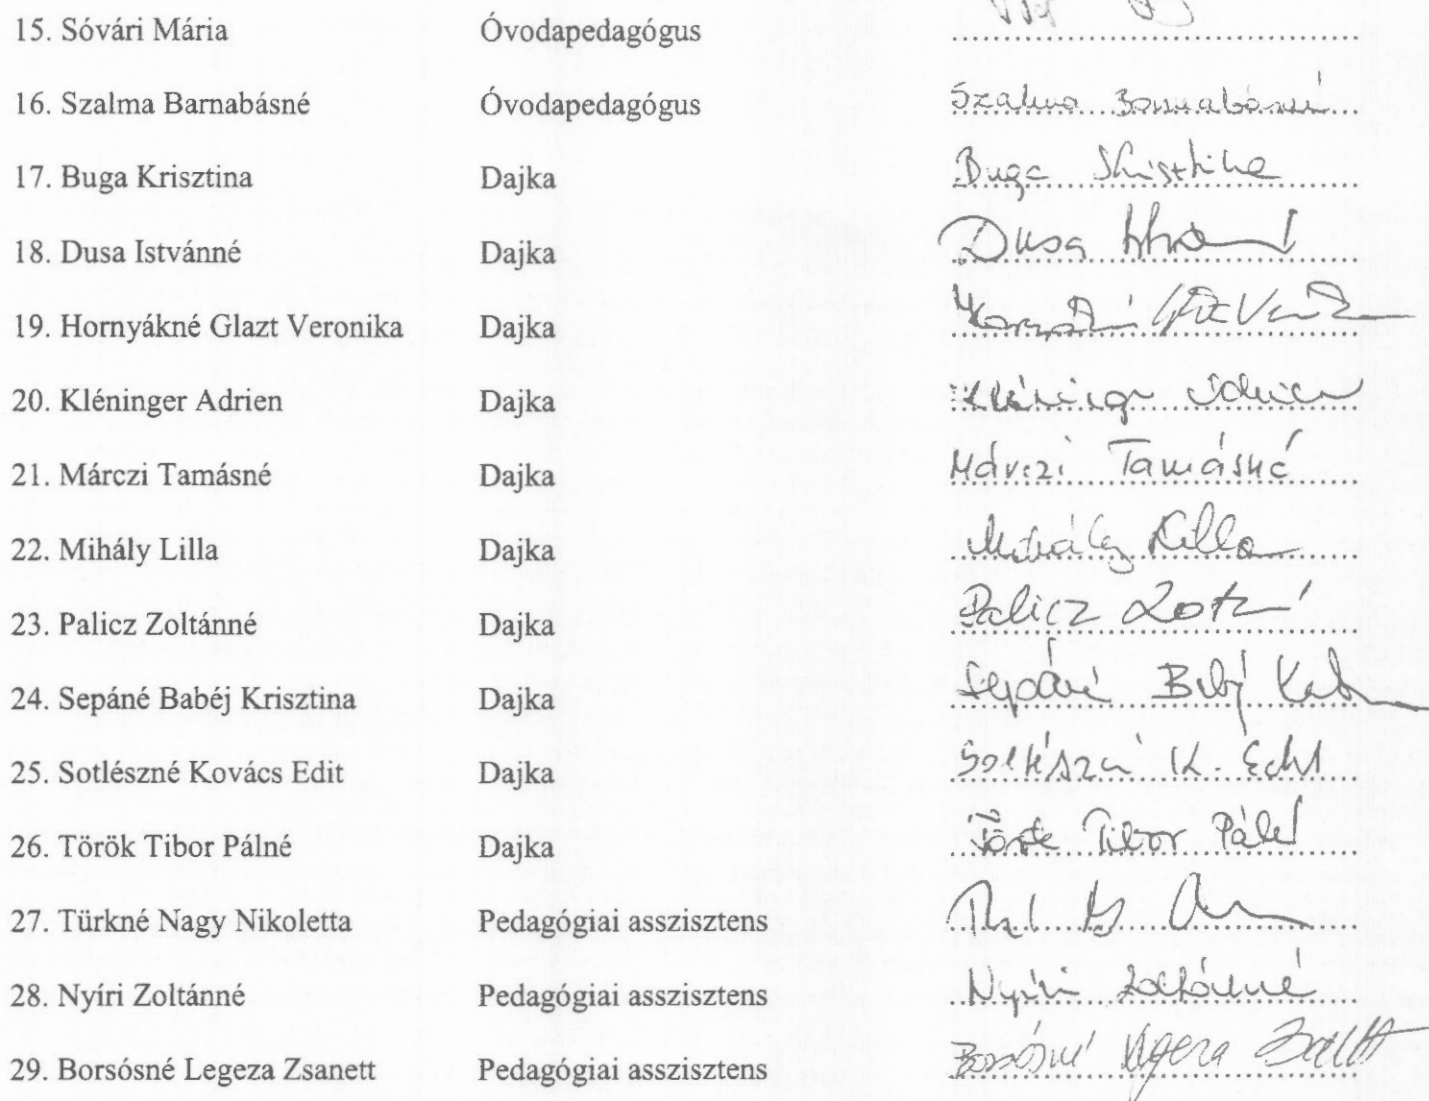 15. Sóvári Mária Óvodapedagógus
16. Szalma Barnabásné Óvodapedagógus Szalma Barnabásné
17. Buga Krisztina Dajka Buga Krisztina
18. Dusa Istvánné Dajka Dusa
19. Hornyákné Glazt Veronika Dajka
20. Kléninger Adrien Dajka Kléninger Adrien
21. Márczi Tamásné Dajka Márczi Tamásné
22. Mihály Lilla Dajka Mihály Lilla
23. Palicz Zoltánné Dajka Palicz
24. Sepáné Babéj Krisztina Dajka
25. Sotlészné Kovács Edit Dajka K. Edit
26. Török Tibor Pálné Dajka Török Tibor Pálné
27. Türkné Nagy Nikoletta Pedagógiai asszisztens
28. Nyíri Zoltánné Pedagógiai asszisztens Nyíri Zoltánné
29. Borsósné Legeza Zsanett Pedagógiai asszisztens Borsósné Legeza Zsanett